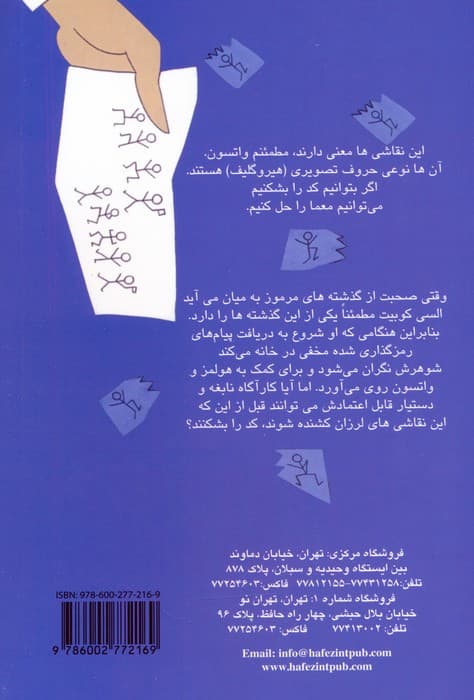 این نقاشی ها معنی دارند، مطمئنم واتسون.
آن ها نوعی حروف تصویری (هیروگلیف) هستند.
اگر بتوانیم کد را بشکنیم
می‌توانیم معما را حل کنیم.
وقتی صحبت از گذشته های مرموز به میان می آید
السی کوبیت مطمئناً یکی از این گذشته ها را دارد.
بنابراین هنگامی که او شروع به دریافت پیام‌های
رمزگذاری شده مخفی در خانه می‌کند
شوهرش نگران می‌شود و برای کمک به هولمز و
واتسون روی می‌آورد. اما آیا کارآگاه نابغه و
دستیار قابل اعتمادش می توانند قبل از این که
این نقاشی های لرزان کشنده شوند، کد را بشکنند؟
فروشگاه مرکزی: تهران، خیابان دماوند
بین ایستگاه وحیدیه و سبلان، پلاک ۸۷۸
تلفن:۷۷۴۳۱۲۵۸-۷۷۸۱۲۱۵۵ فاکس:۷۷۲۵۴۶۰۳
فروشگاه شماره ۱: تهران، تهران نو
خیابان بلال حبشی، چهار راه حافظ، پلاک ۹۶
تلفن: ۷۷۴۱۳۰۰۲ فاکس: ۷۷۲۵۴۶۰۳
Email: info@hafezintpub.com
www.hafezintpub.com
ISBN: 978-600-277-216-9
9 786002 772169